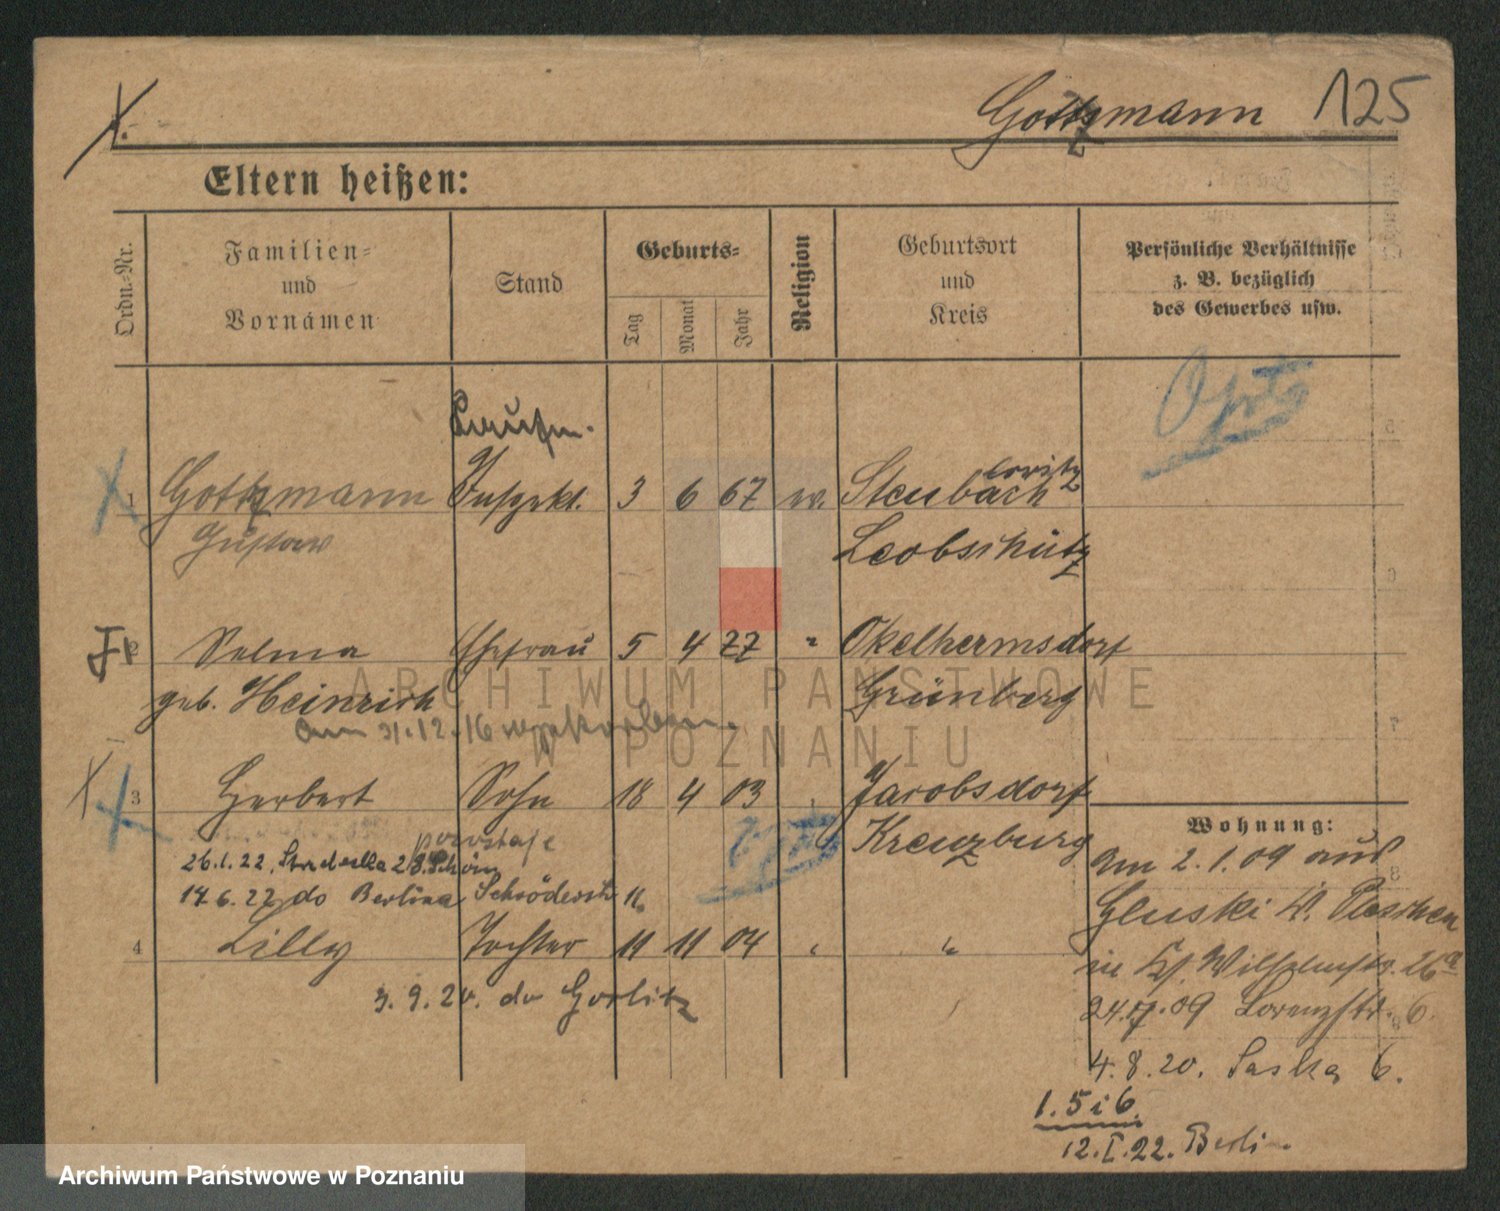 Gottzmann 125
Eltern heißen:
Ordn.-Nr.
Familien-
und
Vornamen
Stand
Geburts-
Tag
Monat
Jahr
Religion
Geburtsort
und
Kreis
Persönliche Verhältnisse
z. B. bezüglich
des Gewerbes usw.
1 Gottzmann Inspekt. 3 6 67 Steubach
witz
Gustaw Leobschütz
2 Selma Ehefrau 5 4 77 " Okelhermsdorf
geb. Heinrich Grünberg
am 31.12.16 verstorben
3 Herbert Sohn 18 4 03 Jacobsdorf
Kreuzburg
pozostaje
26.1.22.
14.6.22 do Berlina Schröderstr 11
4 Lilly Tochter 11 11 04 " "
3.9.20. do Gorlitz
Wohnung:
am 2.1.09 aus
Gluski Kr. Pleschen
in
24. .09 Lorenzstr. 6.
4.8.20. Saska 6.
1.5 i 6.
12.I.22. Berlin
ARCHIWUM PAŃSTWOWE
W POZNANIU
Archiwum Państwowe w Poznaniu